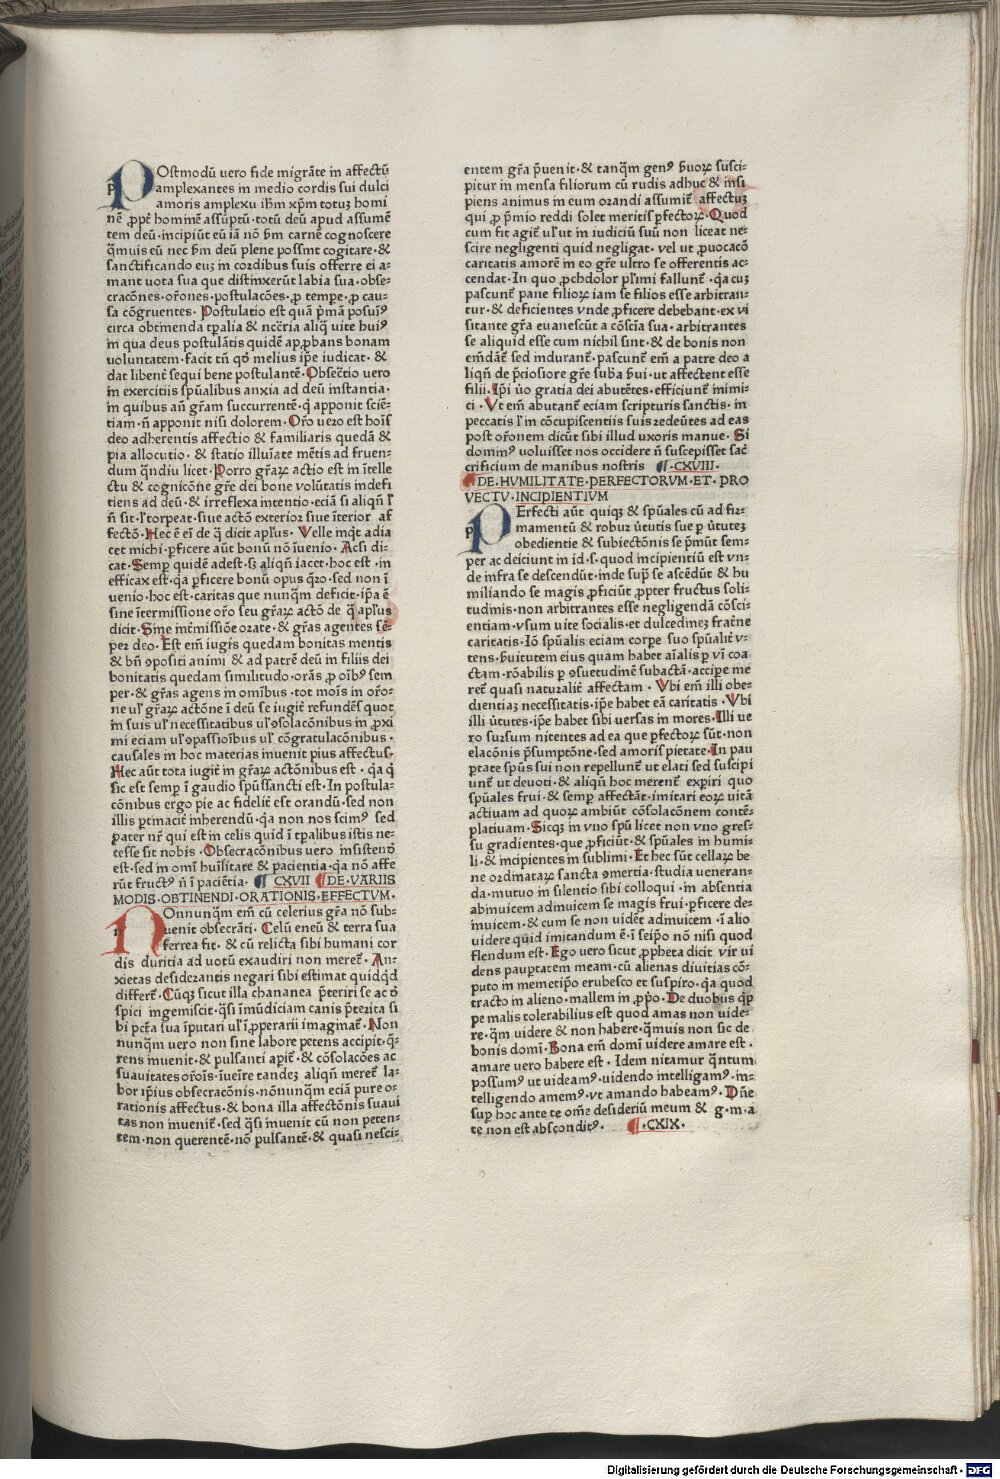 POstmodū uero fide migrāte in affectū
amplexantes in medio cordis sui dulci
amoris amplexu ihm xp̄m totuʒ homi
nē ꝓpt̄ hominē assūptū·totū deū apud assumē
tem deū·incipiūt eū iā nō ẜm carnē cognoscere
q̄muis eū nec ẜm deū plene possint cogitare·&
sanctificando euʒ in cordibus suis offerre ei a⸗
mant uota sua que distinxerūt labia sua·obse⸗
cracōnes·or̄ones·postulacōes·ꝓ tempe·ꝓ cau⸗
sa cōgruentes· Postulatio est quā p̄mā posuiꝰ
circa obtinenda tp̄alia & nc̄cr̄ia aliq̄ uite huiꝰ
in qua deus postulātis quidē apꝓbans bonam
voluntatem·facit tn̄ qđ melius ip̄e iudicat· &
dat libent̄ sequi bene postulantē·Obsec̄tio uero
in exercitiis sp̄ualibus anxia ad deū instantia·
in quibus an̄ gr̄am succurrentē·q̄ apponit sciē⸗
tiam·n̄ apponit nisi dolorem·Or̄o uero est hoīs
deo adherentis affectio & familiaris quedā &
pia allocutio· & statio illuīate mētis ad fruen⸗
dum q̄ndiu licet·Porro gr̄aꝝ actio est in ītelle
ctu & cognicōne gr̄e dei bone volūtatis indefi
tiens ad deū·& irreflexa intentio·eciā si aliqn̄ ł
n̄ sit·ł torpeat·siue actō exterior siue īterior af
fectō·Hec ē eī de q̄ dicit apl̄us· Velle inqt adia
cet michi·ꝑficere aūt bonū nō īuenio· Acsi di⸗
cat·Semꝑ quidē adest·sʒ aliqn̄ iacet·hoc est·in
efficax est·q̄a ꝑficere bonū opus q̄ro·sed non ī
uenio·hoc est·caritas que nunq̄m deficit·ip̄a ē
sine ītermissione or̄o seu gr̄aꝝ actō de q̄ apl̄us
dicit·Sine int̄missiōe orate·& gr̄as agentes sē⸗
per deo·Est em̄ iugis quedam bonitas mentis
& bn̄ ꝯpositi animi & ad patrē deū in filiis dei
bonitatis quedam similitudo·orās ꝓ oībꝰ sem
per·& gr̄as agens in omībus·tot moīs in or̄o⸗
ne ul̄ gr̄aꝝ actōne ī deū se iugit̄ refundēs quot
in suis ul̄ necessitatibus ul̄ ꝯsolacōnibus in ꝓxi
mi eciam ul̄ ꝯpassioībus ul̄ cōgratulacōnibus·
causales in hoc materias inuenit pius affectus·
Hec aūt tota iugit̄ in gr̄aꝝ actōnibus est·q̄a q̄
sic est semꝑ ī gaudio sp̄ussancti est·In postula⸗
cōnibus ergo pie ac fidelit̄ est orandū·sed non
illis ꝑtinacit̄ inherendū·q̄a non nos scimꝰ sed
pater nr̄ qui est in celis quid ī tp̄alibus istis ne⸗
cesse sit nobis·Obsecracōnibus uero insistenđ
est·sed in omī huīlitate & pacientia·q̄a nō affe
rūt fructꝰ n̄ ī paciētia· CXVII DE·VARIIS
MODIS·OBTINENDI·ORATIONIS·EFFECTVM·
NOnnunq̄m em̄ cū celerius gr̄a nō sub⸗
uenit obsecrāti·Celū eneū & terra sua
ferrea fit·& cū relicta sibi humani cor
dis duritia ad uotū exaudiri non meret̄·An⸗
xietas desiderantis negari sibi estimat quidq̄d
differt̄·Cūqʒ sicut illa chananea p̄teriri se ac đ
spici ingemiscit·q̄si īmūdiciam canis p̄terita si
bi pctā sua īputari ul̄ īꝓperarii imaginat̄·Non
nunq̄m uero non sine labore petens accipit·q̄⸗
rens inuenit·& pulsanti apit̄·& cōsolacōes ac
suauitates or̄oīs·īueīre tandeʒ aliqn̄ meret̄ la⸗
bor ip̄ius obsecracōnis·nōnunq̄m eciā pure o⸗
rationis affectus·& bona illa affectōnis suaui
tas non inuenit̄·sed q̄si inuenit cū non peten⸗
tem·non querentē·nō pulsantē·& quasi nesci⸗
entem gr̄a p̄uenit·& tanq̄m genꝰ ẜuoꝝ susci⸗
pitur in mensa filiorum cū rudis adhuc & insi
piens animus in eum orandi assumit̄ affectuʒ
qui ꝓ p̄mio reddi solet meritis ꝑfectoꝝ·Quod
cum fit agit̄ ul̄ ut in iudiciū suū non liceat ne⸗
scire negligenti quid negligat·vel ut ꝓuocacō
caritatis amorē in eo gr̄e ultro se offerentis ac⸗
cendat·In quo ꝓchdolor pl̄imi fallunt̄·q̄a cuʒ
pascunt̄ pane filioꝝ iam se filios esse arbitran⸗
tur·& deficientes vnde ꝓficere debebant·ex vi
sitante gr̄a euanescūt a cōscīa sua·arbitrantes
se aliquid esse cum nichil sint·& de bonis non
em̄dāt̄ sed indurant̄·pascunt̄ em̄ a patre deo a
liqn̄ de p̄ciosiore gr̄e subā ẜui·ut affectent esse
filii·Ip̄i ūo gratia dei abutētes·efficiunt̄ inimi⸗
ci·Vt em̄ abutant̄ eciam scripturis sanctis·in
peccatis ł in cōcupiscentiis suis redeūtes ad eas
post or̄onem dicūt sibi illud uxoris manue·Si
dominꝰ uoluisset nos occidere n̄ suscepisset sac̄
crificium de manibus nostris ·CXVIII·
DE·HVMILITATE·PERFECTORVM·ET·PRO
VECTV·INCIPIENTIVM
PErfecti aūt quiqʒ & sp̄uales cū ad fir⸗
mamentū & robur ūtutis sue ꝑ ūtuteʒ
obedientie & subiectōnis se p̄mūt sem⸗
per ac deiciunt in id·s·quod incipientiū est vn⸗
de infra se descendūt·inde sup̄ se ascēdūt & hu
miliando se magis ꝓficiūt ꝓpter fructus soli⸗
tudinis·non arbitrantes esse negligendā cōsci⸗
entiam·vsum uite socialis·et dulcedineʒ frat̄ne
caritatis·Iō sp̄ualis eciam corpe suo sp̄ualit̄ v⸗
tens·ẜuitutem eius quam habet aīalis ꝑ vī coa
ctam·rōabilis ꝑ ꝯsuetudinē subactā·accipe me
ret̄ quasi naturalit̄ affectam·Vbi em̄ illi obe⸗
dientiaʒ necessitatis·ip̄e habet eā caritatis·Vbi
illi ūtutes·ip̄e habet sibi uersas in mores·Illi ue
ro sursum nitentes ad ea que ꝑfectoꝝ sūt·non
elacōnis p̄sumptōne·sed amoris pietate·In pau
ꝑtate sp̄us sui non repellunt̄ ut elati sed suscipi
unt̄ ut deuoti·& aliqn̄ hoc merent̄ exꝑiri quo
sp̄uales frui·& semꝑ affectāt·imitari eoꝝ uitā
actiuam ad quoꝝ ambiūt cōsolacōnem contē⸗
platiuam·Sicqʒ in vno sp̄u licet non vno gres⸗
su gradientes·que ꝓficiūt·& sp̄uales in humi⸗
li·& incipientes in sublimi·Et hec sūt cellaꝝ be
ne ordinataꝝ sancta ꝯmertia·studia ueneran⸗
da·mutuo in silentio sibi colloqui·in absentia
abinuicem adinuicem se magis frui·ꝓficere de⸗
inuicem·& cum se non uidēt adinuicem·ī alio
uidere quid imitandum ē·ī seip̄o nō nisi quod
flendum est·Ego uero sicut ꝓpheta dicit vir ui
dens pauꝑtatem meam·cū alienas diuitias cō⸗
puto in memetip̄o erubesco et suspiro·q̄a quod
tracto in alieno·mallem in ꝓp̄o·De duobus q̄p̄
pe malis tolerabilius est quod amas non uide⸗
re·q̄m uidere & non habere·q̄muis non sic de
bonis domī·Bona em̄ domī uidere amare est·
amare vero habere est· Idem nitamur q̄ntum
possumꝰ ut uideamꝰ·uidendo intelligamꝰ·in⸗
telligendo amemꝰ·vt amando habeamꝰ·Dn̄e
sup̄ hoc ante te om̄e desideriū meum & g·m·a
te non est absconditꝰ· ·CXIX·
Digitalisierung gefördert durch die Deutsche Forschungsgemeinschaft · DFG